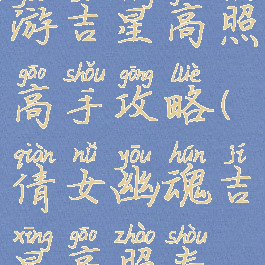 游吉星高照
gāo shǒu gōng lüè
高手攻略(
qiàn nǚ yōu hún jí
倩女幽魂吉
xīng gāo zhào shòu
星高照寿